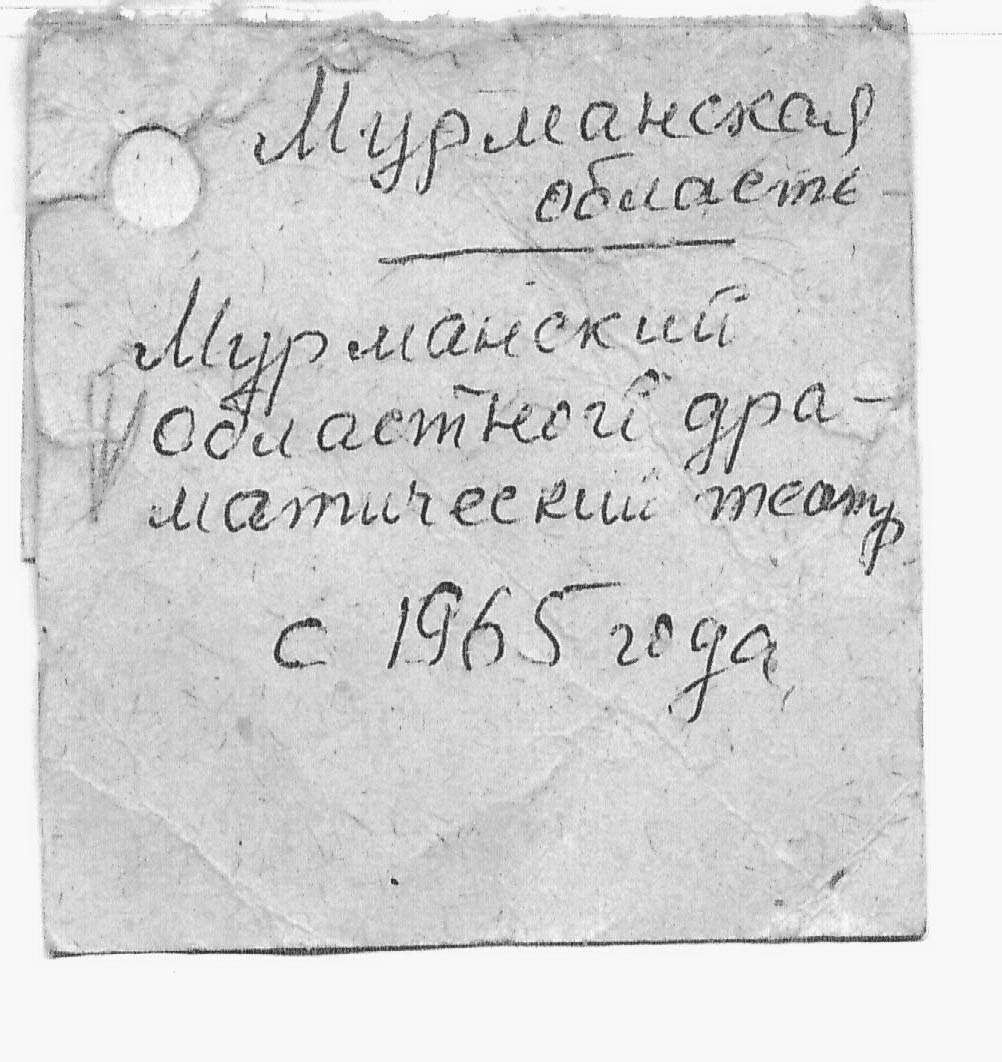 Мурманская
область
Мурманский
областной дра-
матический театр
с 1965 года